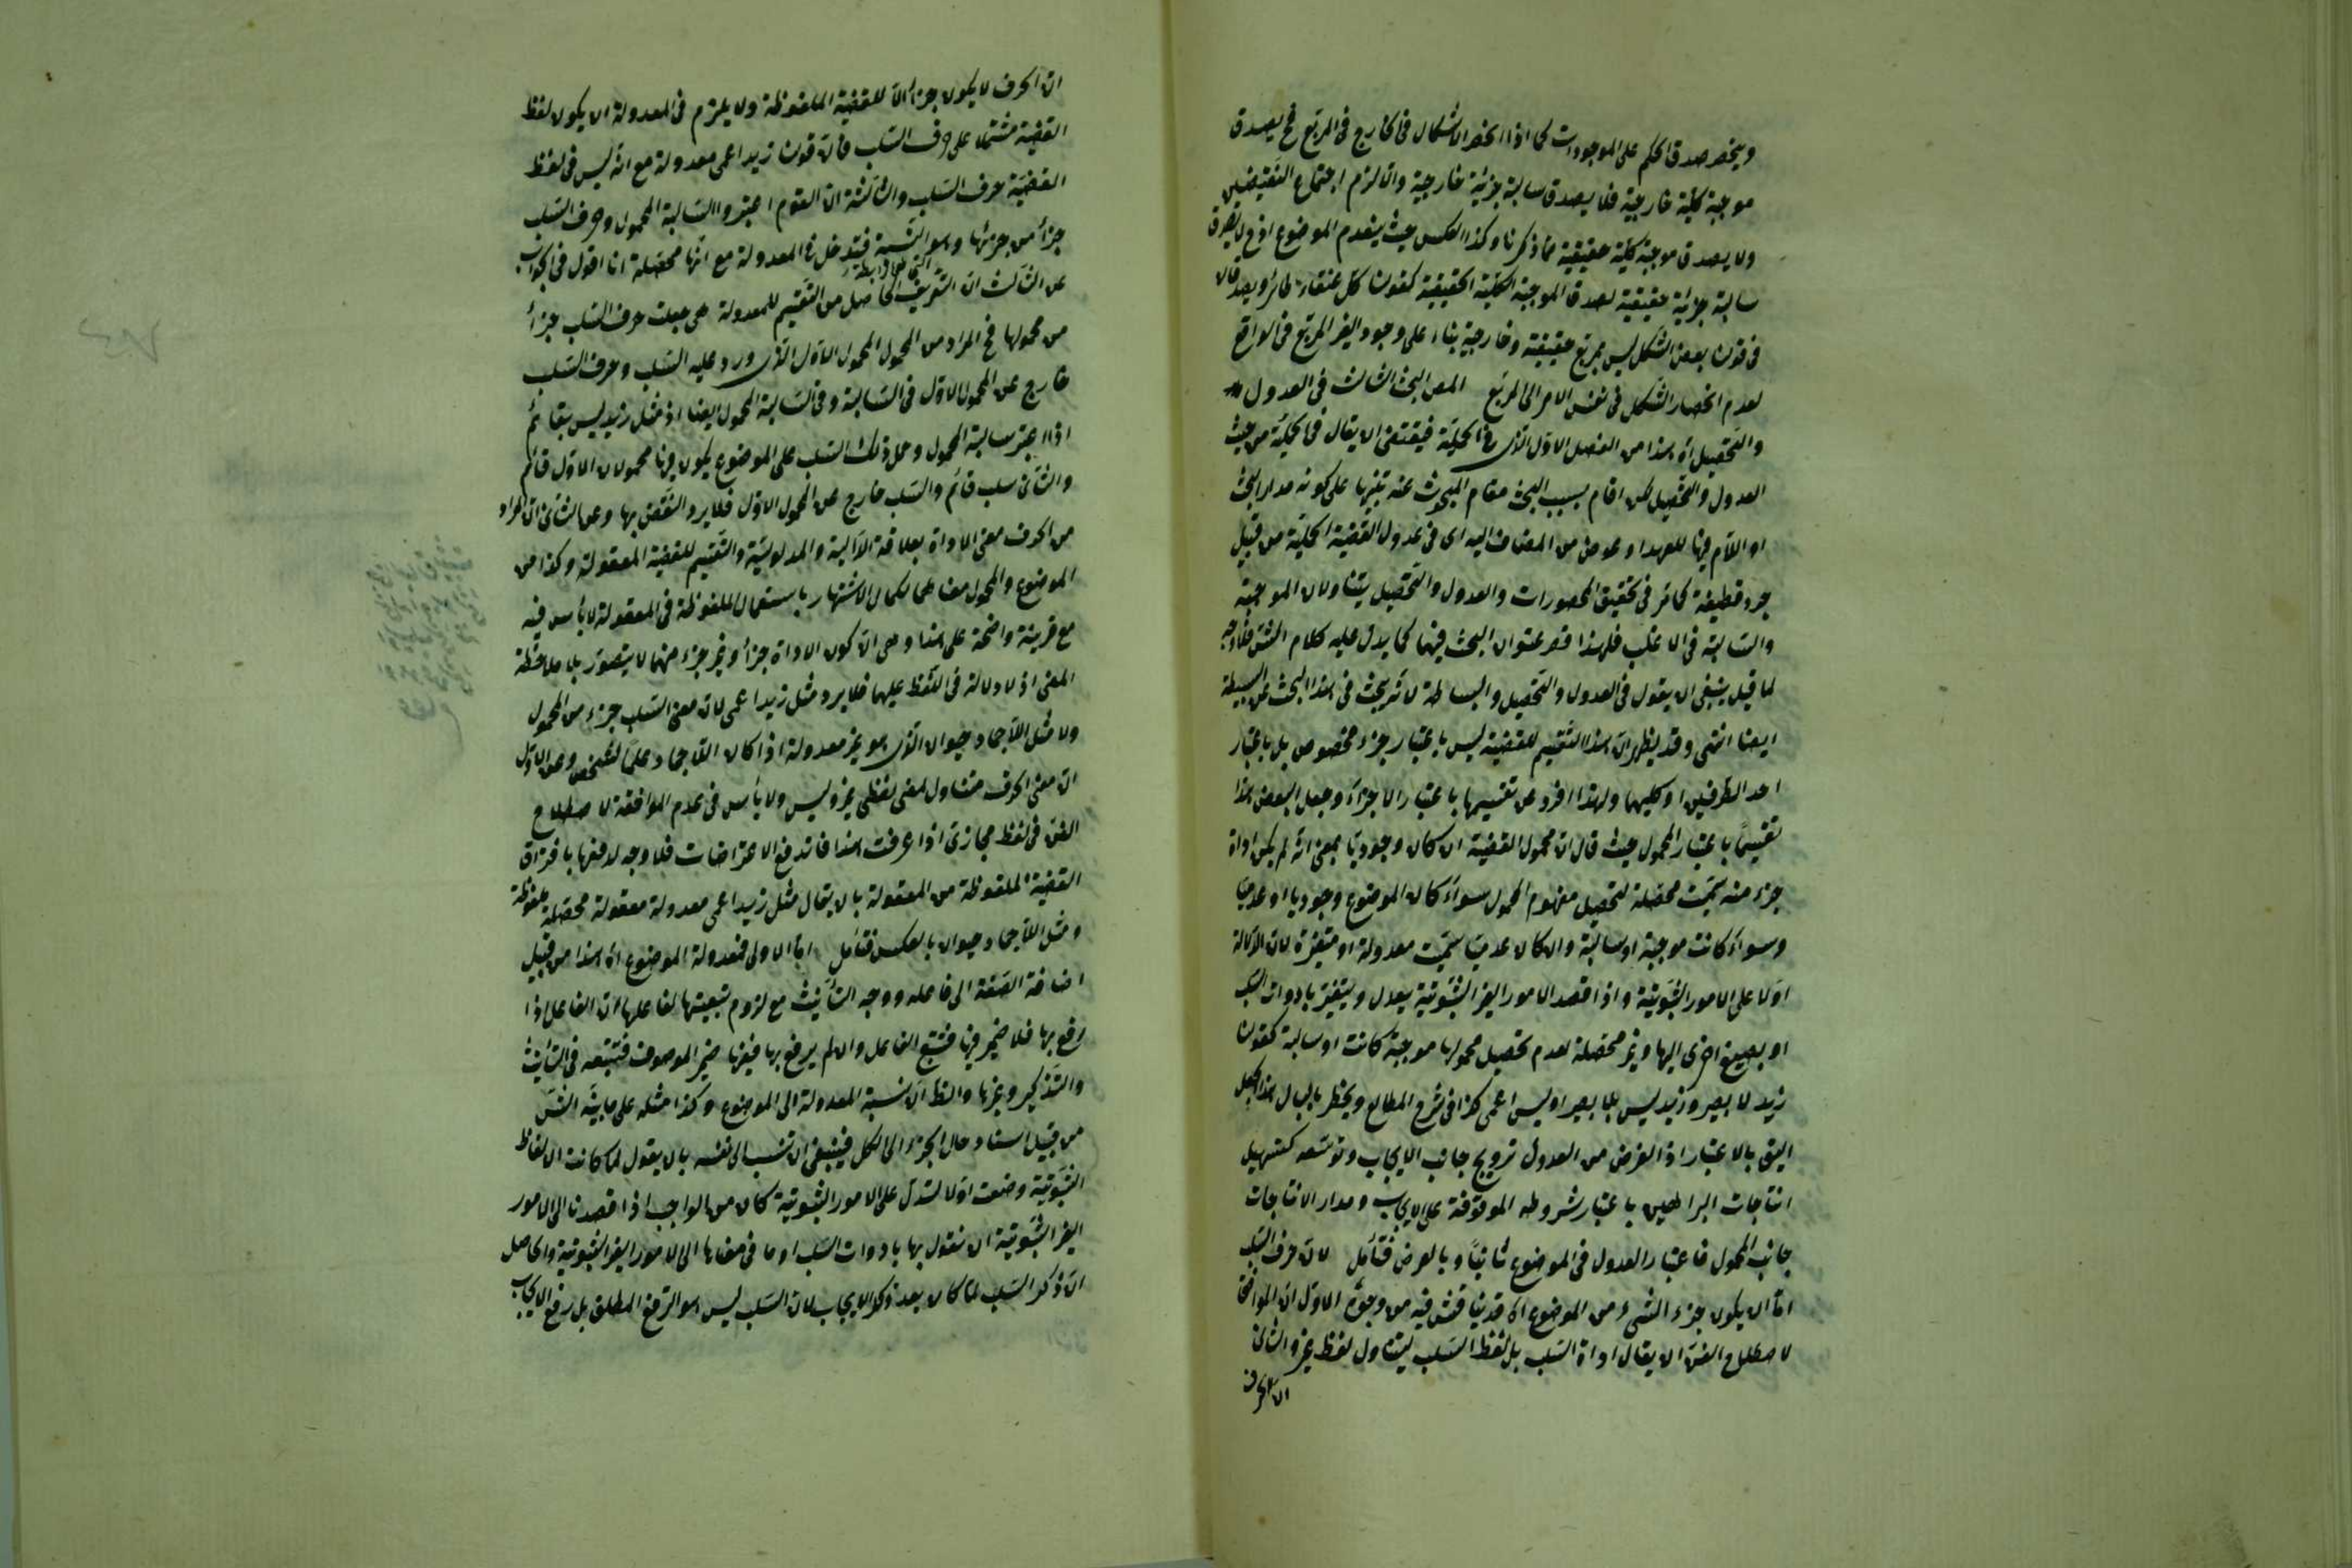 وينحصر صدق الحكم على الموجودات كما اذا انحصر الاشكال فى الخارج فى المربع فح يصدق
موجبة كلية خارجية فلا يصدق سالبة جزئية خارجية والا لزم اجتماع النقيضين
ولا يصدق موجبة كلية حقيقية لما ذكرنا وكذا العكس حيث ينعدم الموضوع اذ ح لا يصدق
سالبة جزئية حقيقية لصدق الموجبة الكلية الحقيقية كقولنا كل عنقاء طائر ويصدقان
فى قولنا بعض الشكل ليس بمربع حقيقية وخارجية بناء على وجود الغير المربع فى الواقع
لعدم انحصار الشكل فى نفس الامر الى المربع المص البحث الثالث فى العدول
والتحصيل اه هذا من الفصل الاول الذى فى الحملية فيقتضى ان يقال فى الحملية من حيث
العدول والتحصيل لكن اقام بسبب البحث مقام المبحوث عنه تنبيها على كونه مدار البحث
او اللام فيها للعهد او عوض من المضاف اليه اى فى عدول القضية الحملية من قبيل
جرد قطيفة كما مر فى تحقيق المحصورات والعدول والتحصيل يتناولان الموجبة
والسالبة فى الاغلب فلهذا قصر عنوان البحث فيهما كما يدل عليه كلام الش فلا وجه
لما قيل ينبغى ان يقول فى العدول والتحصيل والبساطة لانه يبحث فى هذا البحث عن البسيطة
ايضا انتهى وقد يظهر ان هذا التقسيم للقضية ليس باعتبار جزء مخصوص بل باعتبار
احد الطرفين او كليهما ولهذا افرد عن تقسيمها باعتبار الاجزاء وجعل البعض هذا
تقسيما باعتبار المحمول حيث قال ان محمول القضية ان كان وجوديا بمعنى انه لم يكن اداة
جزء منه سميت محصلة لتحصيل مفهوم المحمول سواء كان الموضوع وجوديا او عدميا
وسواء كانت موجبة او سالبة وان كان عدميا سميت معدولة او متغيرة لان الدلالة
اولا على الامور الثبوتية واذا قصد الامور الغير الثبوتية يعدل ويتغير بادوات السلب
او بصيغ اخرى اليها وغير محصلة لعدم تحصيل محمولها موجبة كانت او سالبة كقولنا
زيد لا بصير وزيد ليس بلا بصير او ليس اعمى كذا فى شرح المطالع ويخطر بالبال هذا الجعل
اليق بالاعتبار اذ الغرض من العدول ترويج جانب الايجاب وتوسعه كتسهيل
انتاجات البراهين باعتبار شروطه الموقوفة على الايجاب ومدار الانتاجات
جانب المحمول فاعتبار العدول فى الموضوع ثانيا وبالعرض فتأمل لان حرف السلب
اما ان يكون جزء الشىء من الموضوع اه قد يناقش فيه من وجوه الاول ان الموافق
لاصطلاح الفن ان يقال اداة السلب بل لفظ السلب ليتناول لفظ غير والثانى
ان الحرف
ان الحرف لا يكون جزأ الا للقضية الملفوظة ولا يلزم فى المعدولة ان يكون لفظ
القضية مشتملا على حرف السلب فان قولنا زيد اعمى معدولة مع انه ليس فى لفظ
القضية حرف السلب والثالثة ان القوم اعتبروا السالبة المحمول وحرف السلب
جزأ من جزئها وهو النسبة فتدخل فى المعدولة مع انها محصلة انا اقول فى الجواب
عن الثالث ان التعريف الحاصل من التقسيم للمعدولة هى جعلت حرف السلب جزأ
من محمولها فح المراد من المحمول المحمول الاول الذى ورد عليه السلب وحرف السلب
خارج عن المحمول الاول فى السالبة وفى السالبة المحمول ايضا اذ مثل زيد ليس بقائم
اذا اعتبر سالبة المحمول وحمل ذلك السلب على الموضوع يكون فيها محمولان الاول قائم
والثانى سلب قائم والسلب خارج عن المحمول الاول فلا يرد النقض بها وعن الثانى ان المراد
من الحرف معنى الاداة بعلاقة الدالية والمدلولية والتقسيم للقضية المعقولة وكذا من
الموضوع والمحمول معناهما لكمال الاشتهار باستعمال الملفوظة فى المعقولة لا بأس فيه
مع قرينة واضحة على هذا وهى ان كون الاداة جزأ وغير جزء منهما لا يتصور بلا ملاحظة
المعنى اذ لا دلالة فى اللفظ عليهما فلا يرد مثل زيد اعمى لان معنى السلب جزء من المحمول
ولا مثل اللاجماد حيوان الذى هو غير معدولة اذا كان اللاجماد علما لشخص وعن الاول
ان معنى الحرف متناول لمعنى لفظى غير وليس ولا بأس فى عدم الموافقة لاصطلاح
الفن فى لفظ مجازى اذا عرفت هذا فاندفع الاعتراضات فلا وجه لدفعها بافتراق
القضية الملفوظة من المعقولة بان يقال مثل زيد اعمى معدولة معقولة محصلة ملفوظة
ومثل اللاجماد حيوان بالعكس فتأمل اما الاولى فمعدولة الموضوع اه هذا من قبيل
اضافة الصفة الى فاعله ووجه التأنيث مع لزوم تبعيتها لفاعلها ان الفاعل اذا
رفع بها فلا ضمير فيها فتتبع الفاعل وان لم يرفع بها فيها ضمير الموصوف فتتبعه فى التأنيث
والتذكير وغيرها والظ ان نسبة المعدولة الى الموضوع وكذا مثله على ما بينه الش
من قبيل اسناد حال الجزء الى الكل فينبغى ان تنسب الى نفسه بان يقول لما كانت الالفاظ
الثبوتية وضعت اولا لتدل على الامور الثبوتية كان من الواجب اذا قصدنا الى الامور
الغير الثبوتية ان نقول بها بادوات السلب او ما فى معناها الى الامور الغير الثبوتية والحاصل
ان ذكر السلب لما كان بعد ذكر الايجاب لان السلب ليس هو الرفع المطلق بل رفع الايجاب